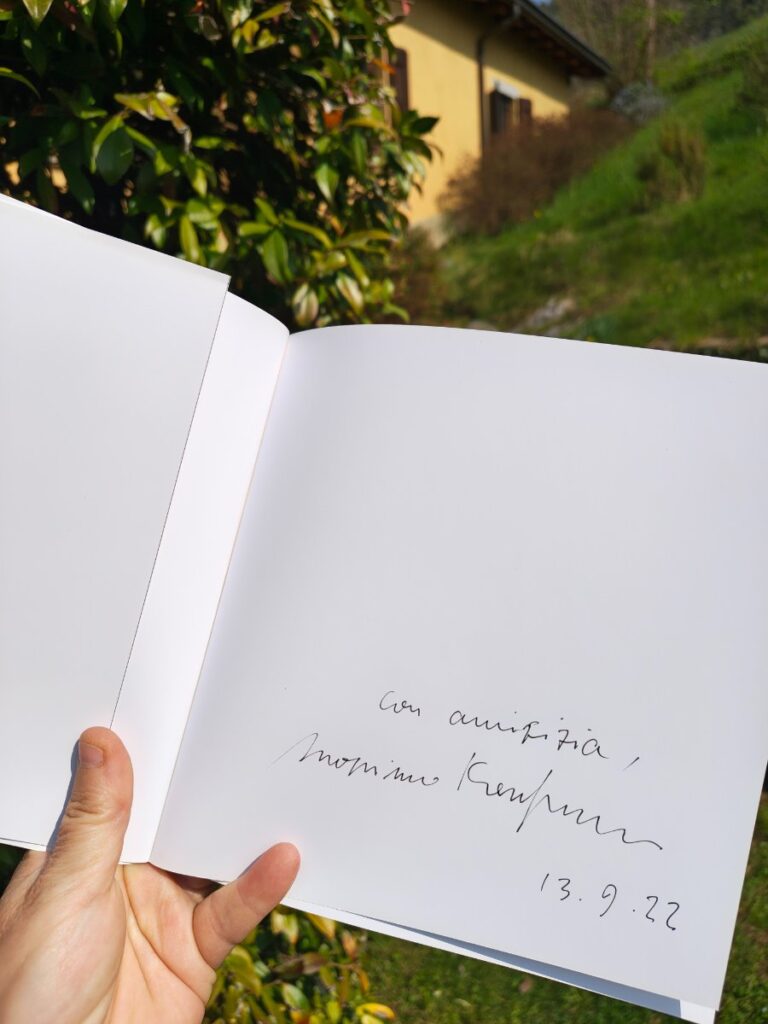 con amicizia,
Massimo Kaufmann
13.9.22